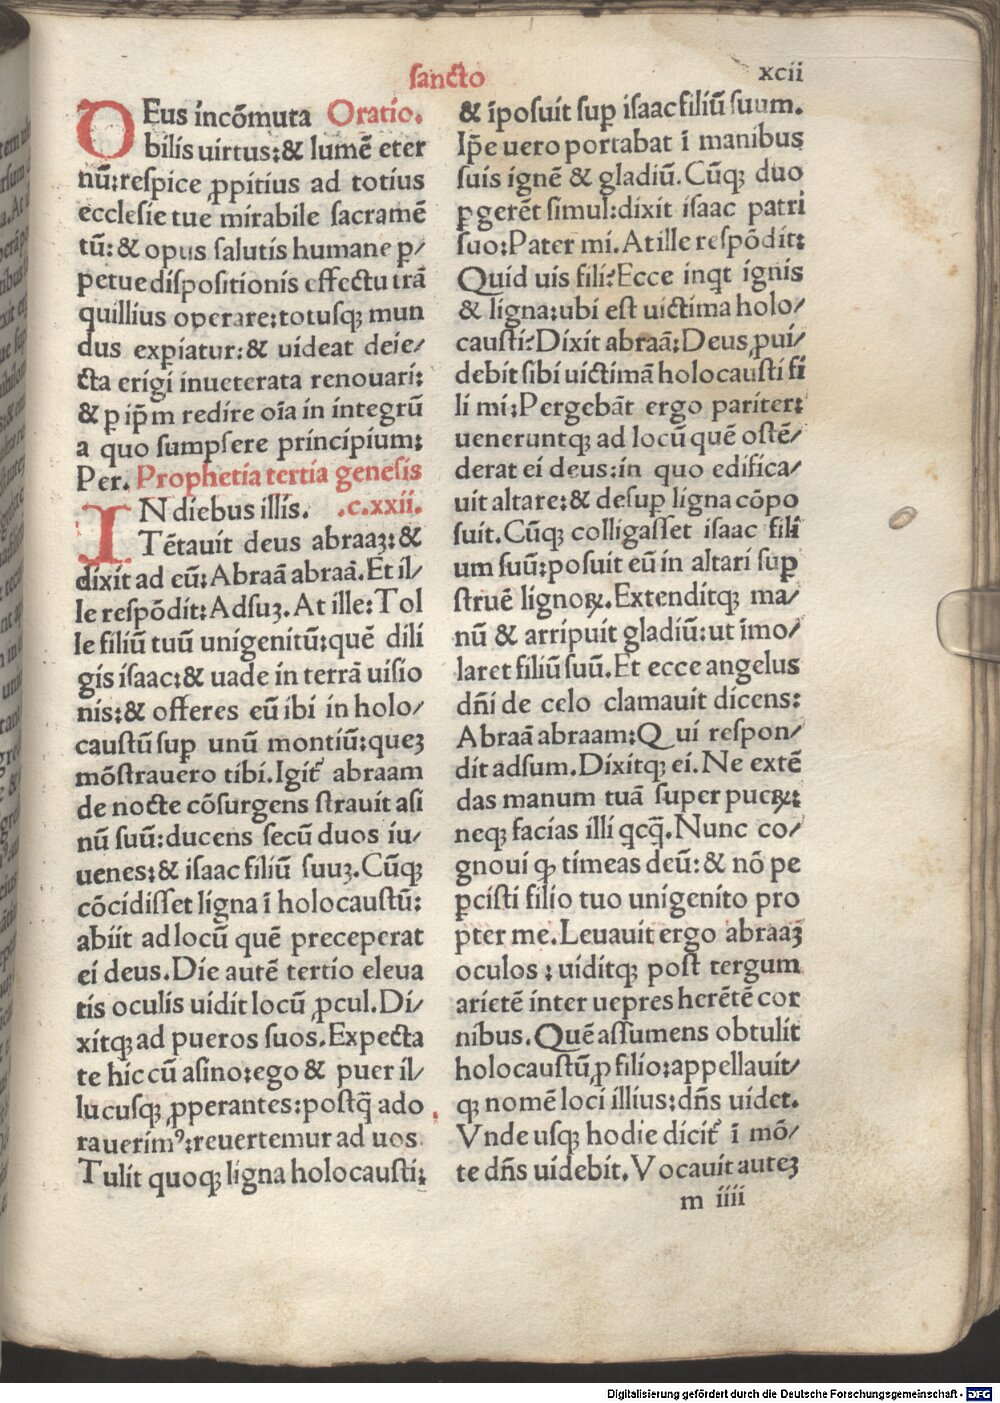 sancto
xcii
DEus incōmuta Oratio.
bilis uirtus:& lumē eter
nū:respice ꝓpitius ad totius
ecclesie tue mirabile sacramē
tū:& opus salutis humane p/
petue dispositionis effectu trā
quillius operare:totusqꝫ mun
dus expiatur:& uideat deie/
cta erigi inueterata renouari:
& ꝑ ip̄m redire oīa in integrū
a quo sumpsere principium:
Per. Prophetia tertia genesis
IN diebus illis. .c.xxii.
Tētauit deus abraaꝫ:&
dixit ad eū:Abraā abraā.Et il/
le respōdit:Adsuꝫ.At ille:Tol
le filiū tuū unigenitū:quē dili
gis isaac:& uade in terrā uisio
nis:& offeres eū ibi in holo/
caustū suꝑ unū montiū:queꝫ
mōstrauero tibi.Igit̄ abraam
de nocte cōsurgens strauit asi
nū suū:ducens secū duos iu/
uenes:& isaac filiū suuꝫ.Cūqꝫ
cōcidisset ligna ī holocaustū:
abiit ad locū quē preceperat
ei deus.Die autē tertio eleua
tis oculis uidit locū ꝓcul.Di/
xitqꝫ ad pueros suos.Expecta
te hic cū asino:ego & puer il/
lucusqꝫ ꝓperantes:postq̄ ado
rauerimꝰ:reuertemur ad uos.
Tulit quoqꝫ ligna holocausti:
& īposuit suꝑ isaac filiū suum.
Ip̄e uero portabat ī manibus
suis ignē & gladiū.Cūqꝫ duo
ꝑgerēt simul:dixit isaac patri
suo:Pater mi.At ille respōdit:
Quid uis fili?Ecce inqt ignis
& ligna:ubi est uictima holo/
causti?Dixit abraā:Deus ꝓui/
debit sibi uictimā holocausti fi
li mi:Pergebāt ergo pariter:
ueneruntqꝫ ad locū quē ostē/
derat ei deus:in quo edifica/
uit altare:& desuꝑ ligna cōpo
suit.Cūqꝫ colligasset isaac fili
um suū:posuit eū in altari suꝑ
struē lignoꝝ.Extenditqꝫ ma/
nū & arripuit gladiū:ut imo/
laret filiū suū.Et ecce angelus
dn̄i de celo clamauit dicens:
Abraā abraam:Qui respon/
dit adsum.Dixitqꝫ ei.Ne extē
das manum tuā super pueꝝ:
neqꝫ facias illi qcq̄.Nunc co/
gnoui ꝙ timeas deū:& nō pe
ꝑcisti filio tuo unigenito pro
pter me.Leuauit ergo abraaꝫ
oculos:uiditqꝫ post tergum
arietē inter uepres herētē cor
nibus.Quē assumens obtulit
holocaustū ꝓ filio:appellauit/
qꝫ nomē loci illius:dn̄s uidet.
Vnde usqꝫ hodie dicit̄ ī mō/
te dn̄s uidebit.Vocauit auteꝫ
m iiii
Digitalisierung gefördert durch die Deutsche Forschungsgemeinschaft - DFG